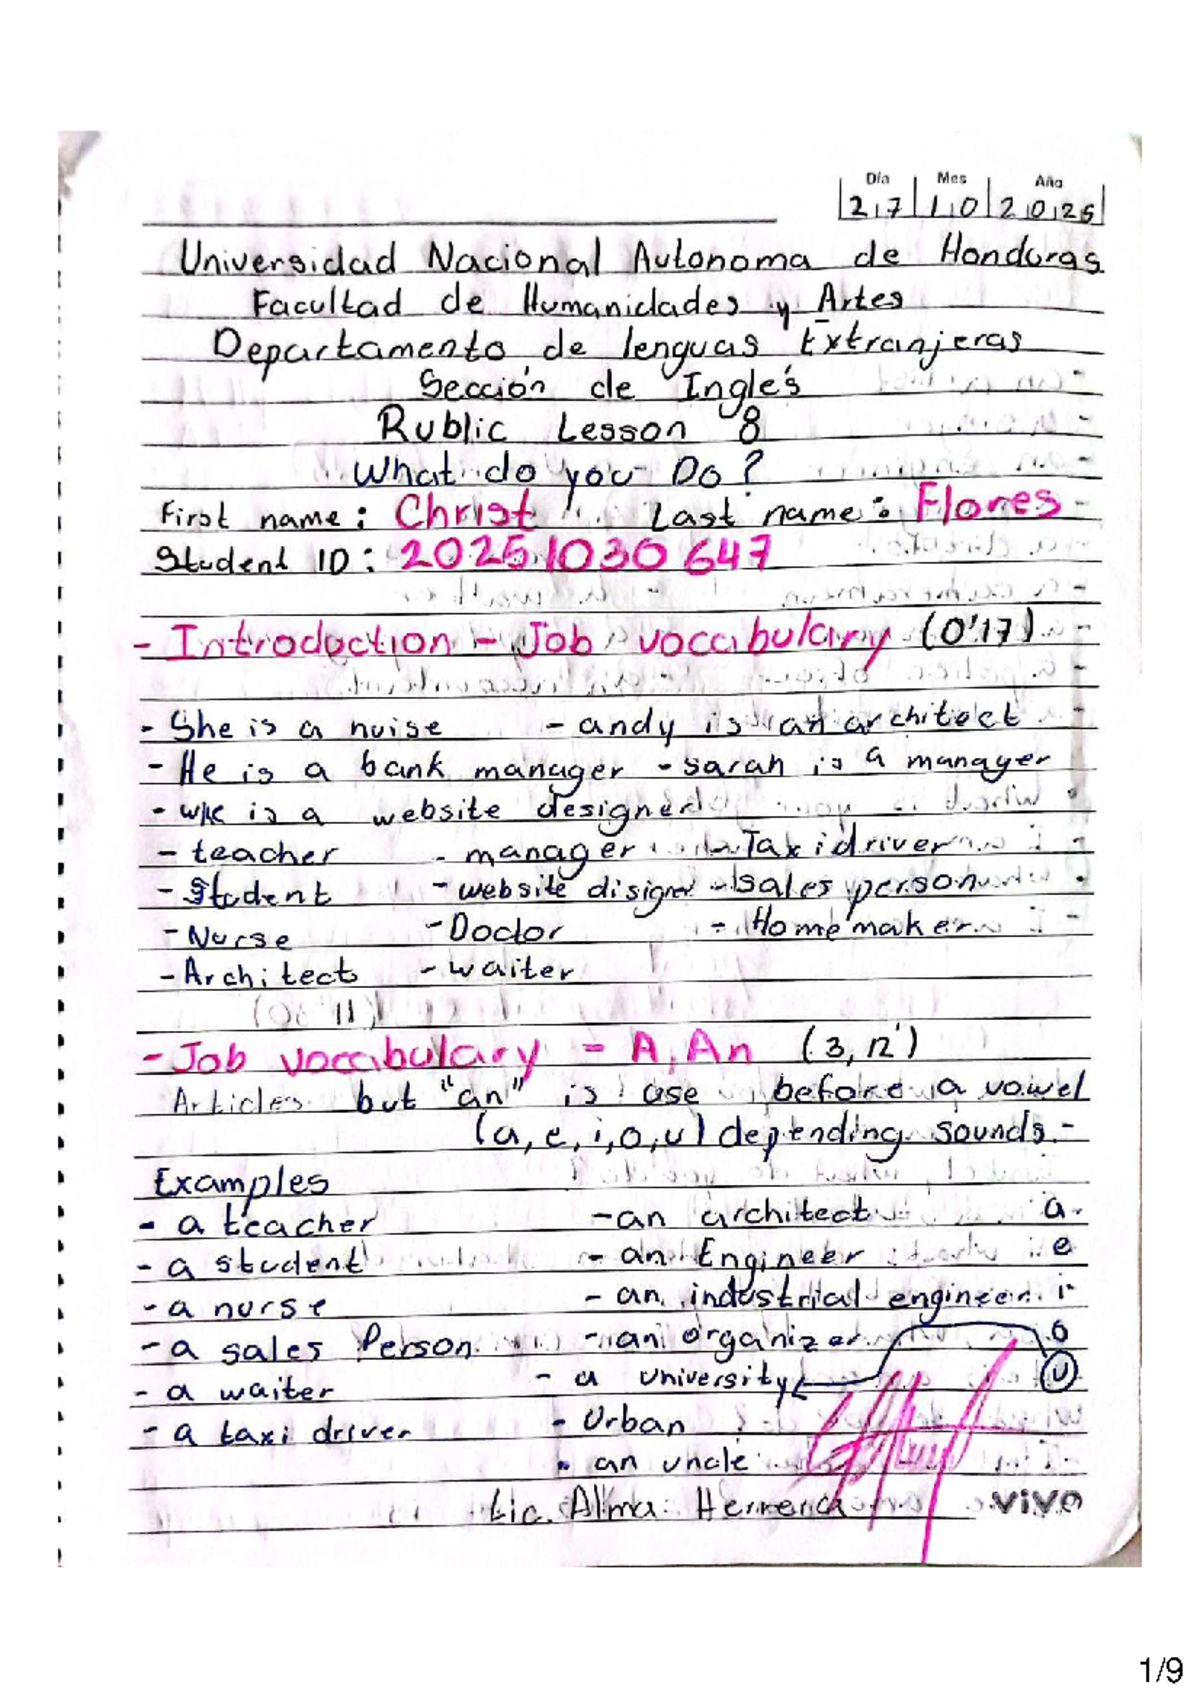 Día Mes Año
27 10 2025
Universidad Nacional Autonoma de Honduras.
Facultad de Humanidades y Artes
Departamento de lenguas Extranjeras
Sección de Inglés
Rublic Lesson 8
What do you Do?
First name: Christ Last name: Flores
Student ID: 20251030647
- Introduction - Job vocabulary (0'17)
- She is a nurse - andy is an architect
- He is a bank manager - sarah is a manager
- is a website designer
- teacher - manager - Taxi driver
- Student - website disigner - sales person
- Nurse - Doctor - Home maker
- Architect - waiter
- Job vocabulary - A, An (3,12')
Articles but "an" is use before a vowel
(a, e, i, o, u) depending sounds.-
Examples
- a teacher - an architect a.
- a student - an Engineer e
- a nurse - an industrial engineer i
- a sales Person - an organizer o
- a waiter - a university u
- a taxi driver - Urban
- an uncle
Lic. Alma Herrera
vivo
1/9